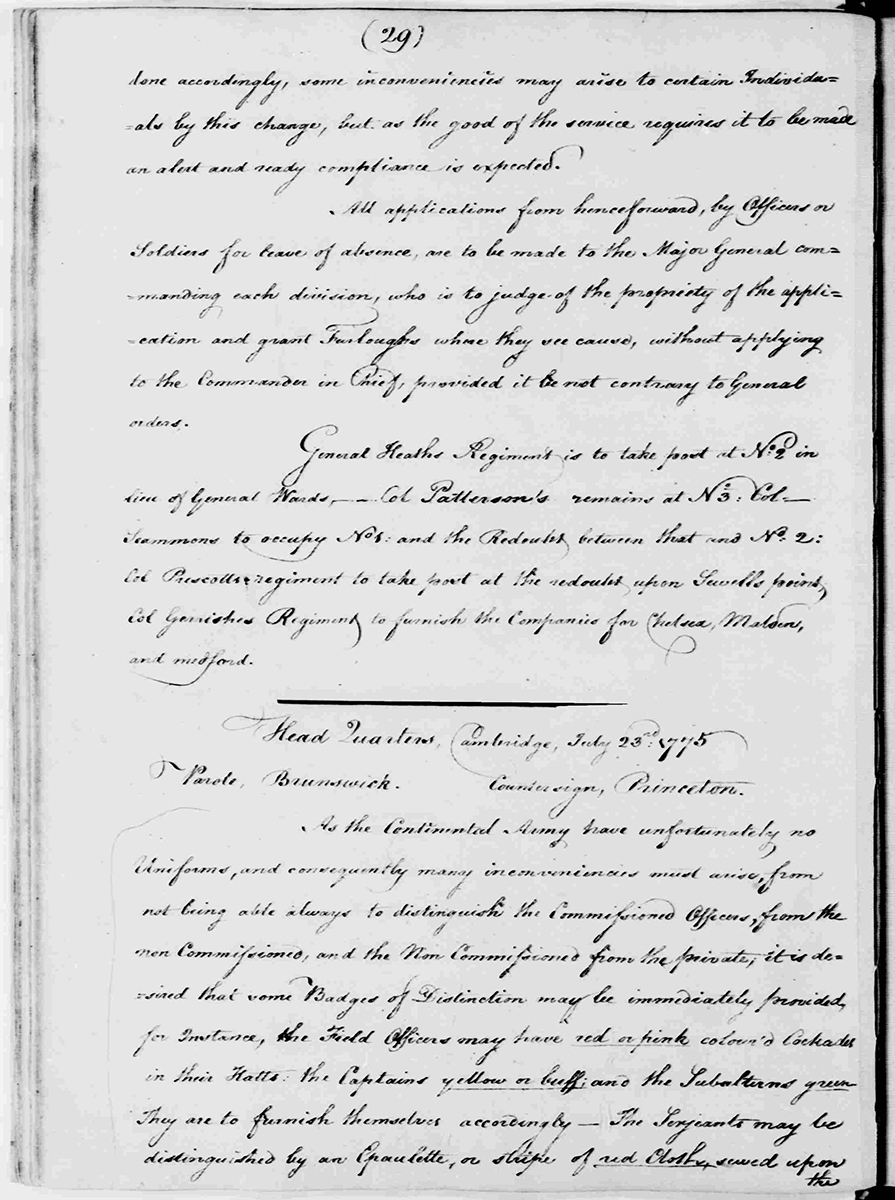 (29)
done accordingly, some inconveniencies may arise to certain Individu=
=als by this change, but as the good of the service requires it to be made
an alert and ready compliance is expected.
All applications from henceforward, by Officers or
Soldiers for leave of absence, are to be made to the Major General com=
=manding each division, who is to judge of the propriety of the appli=
=cation and grant Furloughs where they see cause, without applying
to the Commander in Chief, provided it be not contrary to General
orders.
General Heaths Regiment is to take post at No. 2 in
lieu of General Wards, — Col Patterson's remains at No 3: Col—
Scammons to occupy No 1: and the Redoubt between that and No. 2:
Col Prescotts regiment to take post at the redoubt upon Sewells point,
Col Gerrishes Regiment to furnish the Companies for Chelsea, Malden,
and medford.
Head Quarters, Cambridge, July 23rd: 1775
Parole, Brunswick. Countersign, Princeton.
As the Continental Army have unfortunately no
Uniforms, and consequently many inconveniencies must arise, from
not being able always to distinguish the Commissioned Officers, from the
non Commissioned, and the Non Commissioned from the private; it is de=
=sired that some Badges of Distinction may be immediately provided,
for Instance, the Field Officers may have red or pink colour'd Cockades
in their Hatts: the Captains yellow or buff: and the Subalterns green
They are to furnish themselves accordingly — The Serjeants may be
distinguished by an Epaulette, or stripe of red Cloth, sewed upon
the